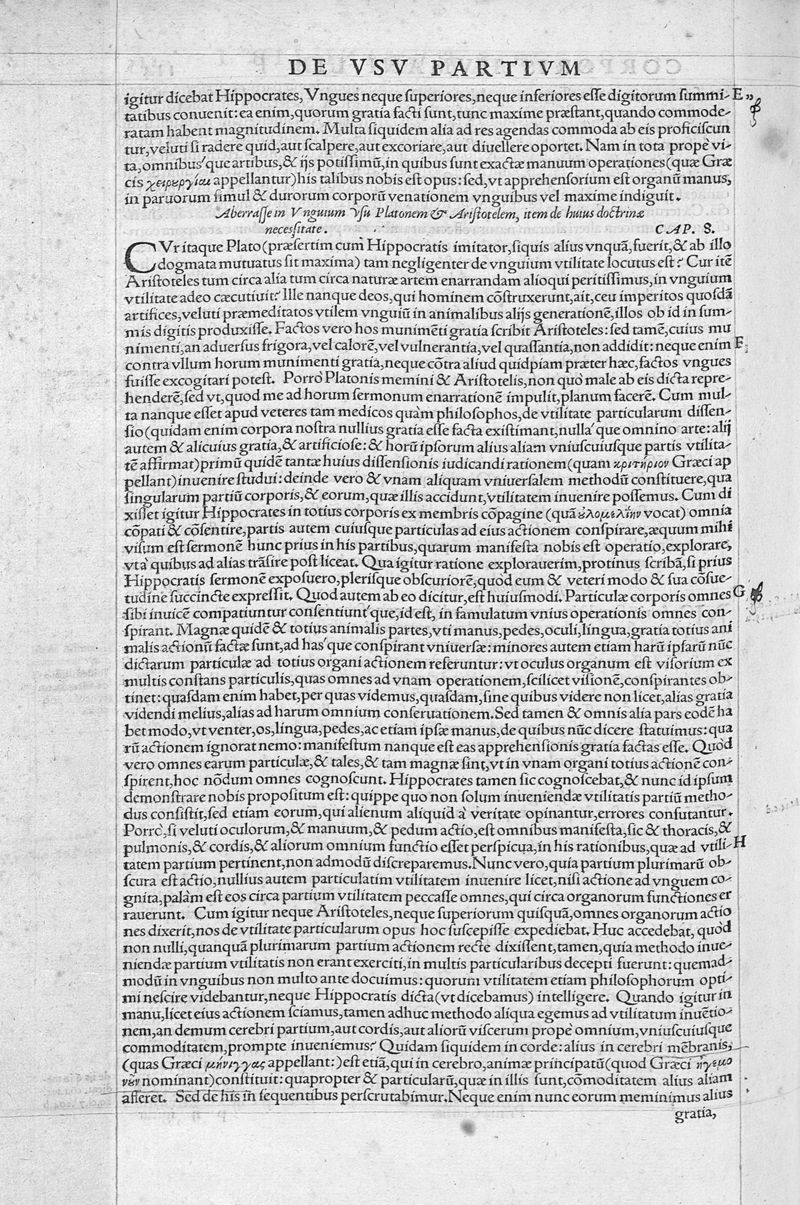 DE VSV PARTIVM
igitur dicebat Hippocrates, Vngues neque superiores, neque inferiores esse digitorum summi- E
tatibus conuenit: ea enim, quorum gratia facti sunt, tunc maxime præstant, quando commode-
ratam habent magnitudinem. Multa siquidem alia ad res agendas commoda ab eis proficiscun
tur, veluti si radere quid, aut scalpere, aut excoriare, aut diuellere oportet. Nam in tota propè vi-
ta, omnibus'que artibus, & ijs potissimũ, in quibus sunt exactæ manuum operationes (quæ Græ
cis χειρεργίαι appellantur) his talibus nobis est opus: sed, vt apprehensorium est organũ manus,
in paruorum simul & durorum corporũ venationem vnguibus vel maxime indiguit.
Aberrasse in Vnguium vsu Platonem & Aristotelem, item de huius doctrinæ
necessitate. CAP. 8.
CVr itaque Plato (præsertim cum Hippocratis imitator, siquis alius vnquã, fuerit, & ab illo
dogmata mutuatus sit maxima) tam negligenter de vnguium vtilitate locutus est? Cur itẽ
Aristoteles tum circa alia tum circa naturæ artem enarrandam alioqui peritissimus, in vnguium
vtilitate adeo cæcutiuit? Ille nanque deos, qui hominem cõstruxerunt, ait, ceu imperitos quosdã
artifices, veluti præmeditatos vtilem vnguiũ in animalibus alijs generationẽ, illos ob id in sum-
mis digitis produxisse. Factos vero hos munimẽti gratia scribit Aristoteles: sed tamẽ, cuius mu
nimenti, an aduersus frigora, vel calorẽ, vel vulnerantia, vel quassantia, non addidit: neque enim F
contra vllum horum munimenti gratia, neque cõtra aliud quidpiam præter hæc, factos vngues
fuisse excogitari potest. Porrò Platonis memini & Aristotelis, non quò male ab eis dicta repre-
henderẽ, sed vt, quod me ad horum sermonum enarrationẽ impulit, planum facerẽ. Cum mul-
ta nanque esset apud veteres tam medicos quàm philosophos, de vtilitate particularum dissen-
sio (quidam enim corpora nostra nullius gratia esse facta existimant, nulla'que omnino arte: alij
autem & alicuius gratia, & artificiose: & horũ ipsorum alius aliam vniuscuiusque partis vtilita-
tẽ affirmat) primũ quidẽ tantæ huius dissensionis iudicandi rationem (quam κριτήριον Græci ap
pellant) inuenire studui: deinde vero & vnam aliquam vniuersalem methodũ constituere, qua
singularum partiũ corporis, & eorum, quæ illis accidunt, vtilitatem inuenire possemus. Cum di
xisset igitur Hippocrates in totius corporis ex membris cõpagine (quã ὁλομελίην vocat) omnia
cõpati & cõsentire, partis autem cuiusque particulas ad eius actionem conspirare, æquum mihi
visum est sermonẽ hunc prius in his partibus, quarum manifesta nobis est operatio, explorare,
vt à quibus ad alias trãsire post liceat. Qua igitur ratione explorauerim, protinus scribã, si prius
Hippocratis sermonẽ exposuero, plerisque obscuriorẽ, quod eum & veteri modo & sua cõsue-
tudine succincte expressit. Quod autem ab eo dicitur, est huiusmodi. Particulæ corporis omnes G
sibi inuicẽ compatiuntur consentiunt'que, id est, in famulatum vnius operationis omnes con-
spirant. Magnæ quidẽ & totius animalis partes, vti manus, pedes, oculi, lingua, gratia totius ani
malis actionũ factæ sunt, ad has'que conspirant vniuersæ: minores autem etiam harũ ipsarũ nũc
dictarum particulæ ad totius organi actionem referuntur: vt oculus organum est visorium ex
multis constans particulis, quas omnes ad vnam operationem, scilicet visionẽ, conspirantes ob-
tinet: quasdam enim habet, per quas videmus, quasdam, sine quibus videre non licet, alias gratia
videndi melius, alias ad harum omnium conseruationem. Sed tamen & omnis alia pars eodẽ ha
bet modo, vt venter, os, lingua, pedes, ac etiam ipsæ manus, de quibus nũc dicere statuimus: qua
rũ actionem ignorat nemo: manifestum nanque est eas apprehensionis gratia factas esse. Quòd
vero omnes earum particulæ, & tales, & tam magnæ sint, vt in vnam organi totius actionẽ con-
spirent, hoc nõdum omnes cognoscunt. Hippocrates tamen sic cognoscebat, & nunc id ipsum
demonstrare nobis propositum est: quippe quo non solum inueniendæ vtilitatis partiũ metho-
dus consistit, sed etiam eorum, qui alienum aliquid à veritate opinantur, errores confutantur.
Porrò, si veluti oculorum, & manuum, & pedum actio, est omnibus manifesta, sic & thoracis, &
pulmonis, & cordis, & aliorum omnium functio esset perspicua, in his rationibus, quæ ad vtili- H
tatem partium pertinent, non admodũ discreparemus. Nunc vero, quia partium plurimarũ ob-
scura est actio, nullius autem particulatim vtilitatem inuenire licet, nisi actione ad vnguem co-
gnita, palàm est eos circa partium vtilitatem peccasse omnes, qui circa organorum functiones er
rauerunt. Cum igitur neque Aristoteles, neque superiorum quisquã, omnes organorum actio
nes dixerit, nos de vtilitate particularum opus hoc suscepisse expediebat. Huc accedebat, quòd
non nulli, quanquã plurimarum partium actionem recte dixissent, tamen, quia methodo inue-
niendæ partium vtilitatis non erant exerciti, in multis particularibus decepti fuerunt: quemad-
modũ in vnguibus non multo ante docuimus: quorum vtilitatem etiam philosophorum opti-
mi nescire videbantur, neque Hippocratis dicta (vt dicebamus) intelligere. Quando igitur in
manu, licet eius actionem sciamus, tamen adhuc methodo aliqua egemus ad vtilitatum inuẽtio-
nem, an demum cerebri partium, aut cordis, aut aliorũ viscerum propè omnium, vniuscuiusque
commoditatem, prompte inueniemus? Quidam siquidem in corde: alius in cerebri mẽbranis,
(quas Græci μήνιγγας appellant:) est etiã, qui in cerebro, animæ principatũ (quod Græci ἡγεμο
νοῦν nominant) constituit: quapropter & particularũ, quæ in illis sunt, cõmoditatem alius aliam
afferet. Sed de his in sequentibus perscrutabimur. Neque enim nunc eorum meminimus alius
gratia,